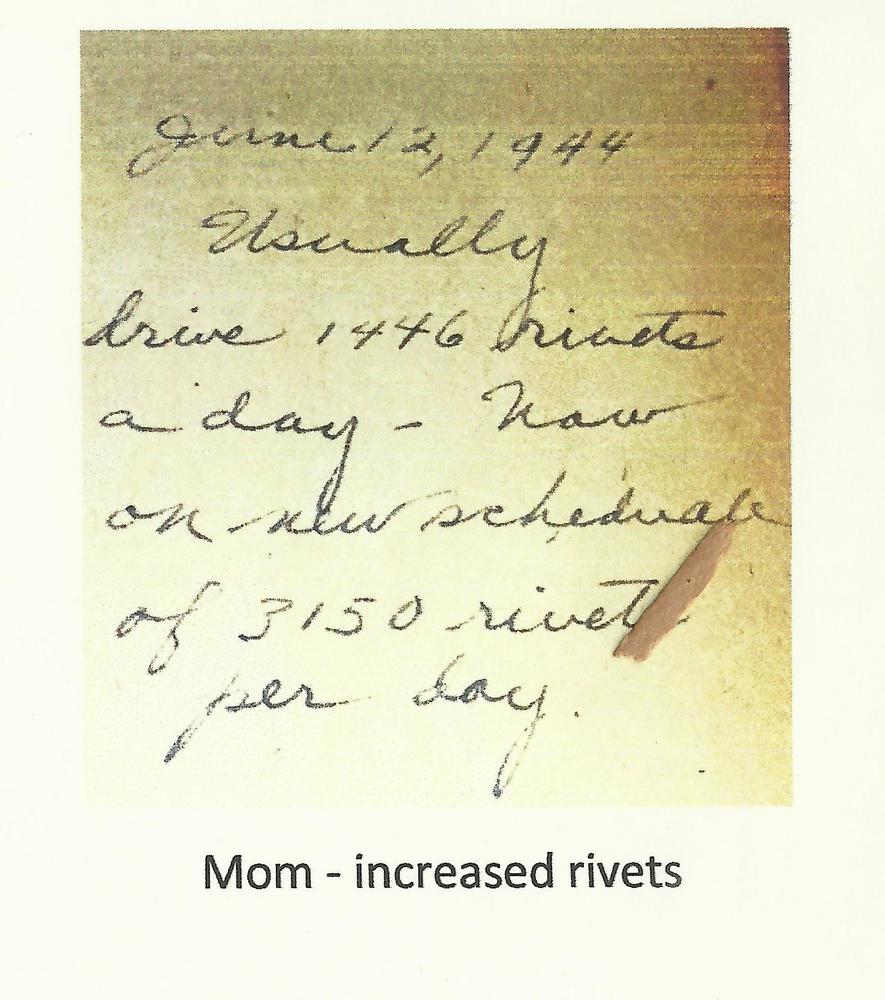 June 12, 1944
Usually
drive 1446 rivets
a day - Now
on new scheduale
of 3150 rivets
per day.
Mom - increased rivets